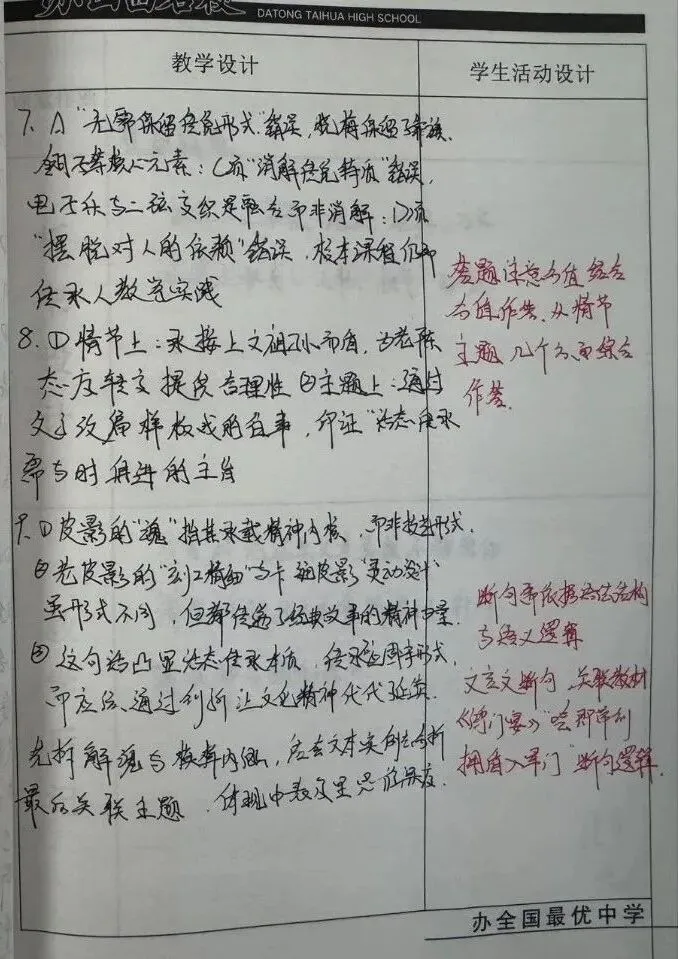 办全国名校
DATONG TAIHUA HIGH SCHOOL
教学设计
学生活动设计
7. A "无需保留传统形式"错误，
等核心元素；C项"消解传统特质"错误，
电子乐与二弦交织是融合而非消解；D项
"摆脱对人的依赖"错误，校本课程仍需
传承人教学实践
8. ①情节上：承接上文祖孙矛盾，为老陈
态度转变提供合理性 ②主题上：通过
父亲改编样板戏的往事，印证"活态传承
需与时俱进的主旨
9. ①皮影的"魂"指其承载精神内核，而非技艺形式.
②老皮影的"刻工精细"与卡通皮影"灵动设计"
虽形式不同，但都传递了经典故事的精神内核.
③这句话凸显活态传承本质，传承非固守形式，
而应 通过创新让文化精神代代延续.
先拆解魂与核心内涵，后会文本实例去分析
最后关联主题，体现
答题注意分值 结合
分值作答. 从情节
主题 几个方面综合
作答.
断句要依据语法结构
与语义逻辑
文言文断句，关联教材
《鸿门宴》"哙即带剑
拥盾入军门"断句逻辑.
办全国最优中学